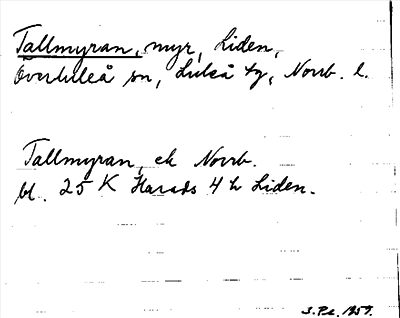 Tallmyran, myr, Liden,
Överluleå sn, Luleå tg, Norrb. l.
Tallmyran, ek Norrb.
bl. 25 K Harads 4 h Liden.
S.Pl. 1959.